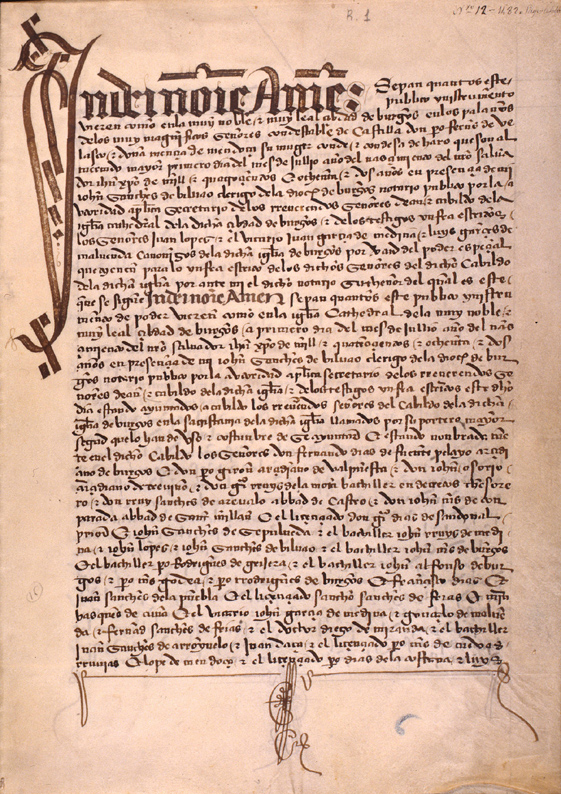 R. 1
In dei no\u0303ie Ame\u0303: Sepan quantos este
publico ynstrumento
vieren como en la muy noble τ muy leal cibdad de burgos en los palaçios
delos muy magnificos Señores condestable de Castilla don pero ferrs de ve
lasco τ doña mençia de mendoça su muger conde τ condesa de haro que son al
primero dia del mes de jullio año del nasçimiento del nro salua
dor ihu xpo de mill τ quatroçientos τ ochenta τ dos años en presençia de mi
iohn sanches de bilbao clerigo dela dioçs de burgos notario publico por la
secretario delos reuerendos Señores dean τ cabildo dela
iglia cathedral dela dicha cibdad de burgos τ delos testigos
los Señores Juan lopes τ el vicario Juan garçia de medina τ luys garçes de
maluenda Canonigos dela dicha iglia de burgos por del poder espeçial
que tienen para lo delos dichos Señores del dicho Cabildo
dela dicha iglia por ante mi el dicho notario del qual es este
que se sigue In dei noie Amen sepan quantos este publico ynstru
mento de poder vieren como en la iglia Cathedral dela muy noble τ
muy leal cibdad de burgos a primero dia del mes de jullio año del nas
çimiento del nro saluador ihu xpo de mill τ quatroçientos τ ochenta τ dos
años en presençia de mi iohn Sanches de bilbao clerigo dela dioçs de bur
gos notario publico por la secretario delos reuerendos Se
ñores dean τ cabildo dela dicha iglia τ delos testigos este dho
dia estando ayuntados a cabildo los señores del Cabildo dela dicha
iglia de burgos en la sacristania dela dicha iglia llamados por su portero
segund que lo han de vso τ costumbre de se ayuntar E estando
te en el dicho Cabildo los Señores don fernando dias de fuente pelayo arçidi
ano de burgos E don po giron arçidiano de valpuesta τ don iohn osorio
arçidiano de treuiño τ don gs de la mota bachiller en decretos thesore
ro τ don sanches de areualo abbad de Castro τ don iohn
abbad de Sant millan E el liçençiado don gs dias de
prior E iohn Sanches de Sepulueda τ el bachiller iohn de medi
na τ iohn lopes τ iohn Sanches de bilbao τ el bachiller iohn ms de burgos
E el bachiller po Rodrigues de grisera τ el bachiller iohn alfonso de bur
gos τ po ms τ po rrodrigues de burgos E françisco dias E
iuan sanches dela puebla E el liçençiado sancho sanches de frias E
basques de E el vicario iohn garçia de medina τ gonçalo de maluen
da τ fernand sanches de frias τ el doctor diego de miranda τ el bachiller
Juan Sanches de arroyuelo τ Juan τ el liçençiado po ms de
E lope de mendoça τ el liçençiado po dias dela τ luys